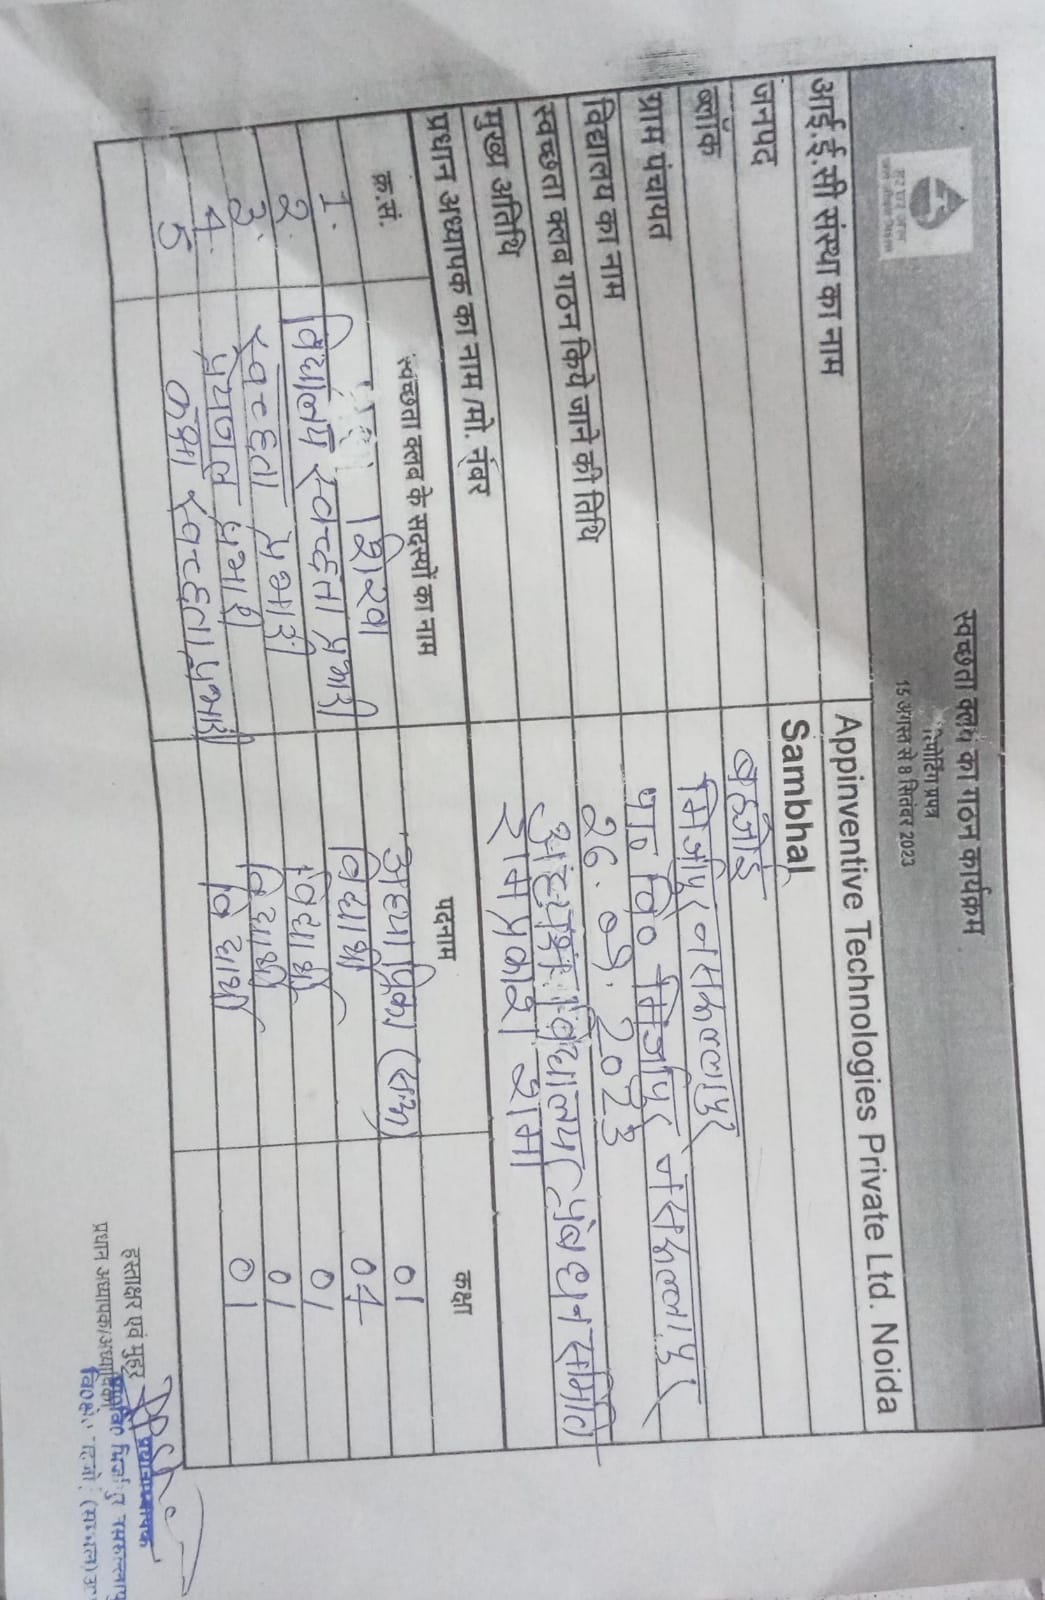 हर घर जल
जल जीवन मिशन
स्वच्छता क्लब का गठन कार्यक्रम
रिपोर्टिंग प्रपत्र
15 अगस्त से 8 सितंबर 2023
आई.ई.सी संस्था का नाम Appinventive Technologies Private Ltd. Noida
जनपद Sambhal
ब्लॉक बहजोई
ग्राम पंचायत मिर्जापुर नसरुल्लापुर
विद्यालय का नाम प्रा० वि० मिर्जापुर नसरुल्लापुर
स्वच्छता क्लव गठन किये जाने की तिथि 26.09.2023
मुख्य अतिथि अध्यक्ष विद्यालय प्रबंधन समिति
प्रधान अध्यापक का नाम /मो. नंबर रामप्रकाश शर्मा
क्र.सं. स्वच्छता क्लव के सदस्यों का नाम पदनाम कक्षा
1. शिखा अध्यापिका 01
2. विद्यालय स्वच्छता प्रभारी विद्यार्थी 04
3. स्वच्छता प्रभारी विद्यार्थी 01
4. पेयजल प्रभारी विद्यार्थी 01
5 कक्षा स्वच्छता प्रभारी विद्यार्थी 01
हस्ताक्षर एवं मुहर
प्रधान अध्यापक/अध्यापिका
प्रधानाध्यापक